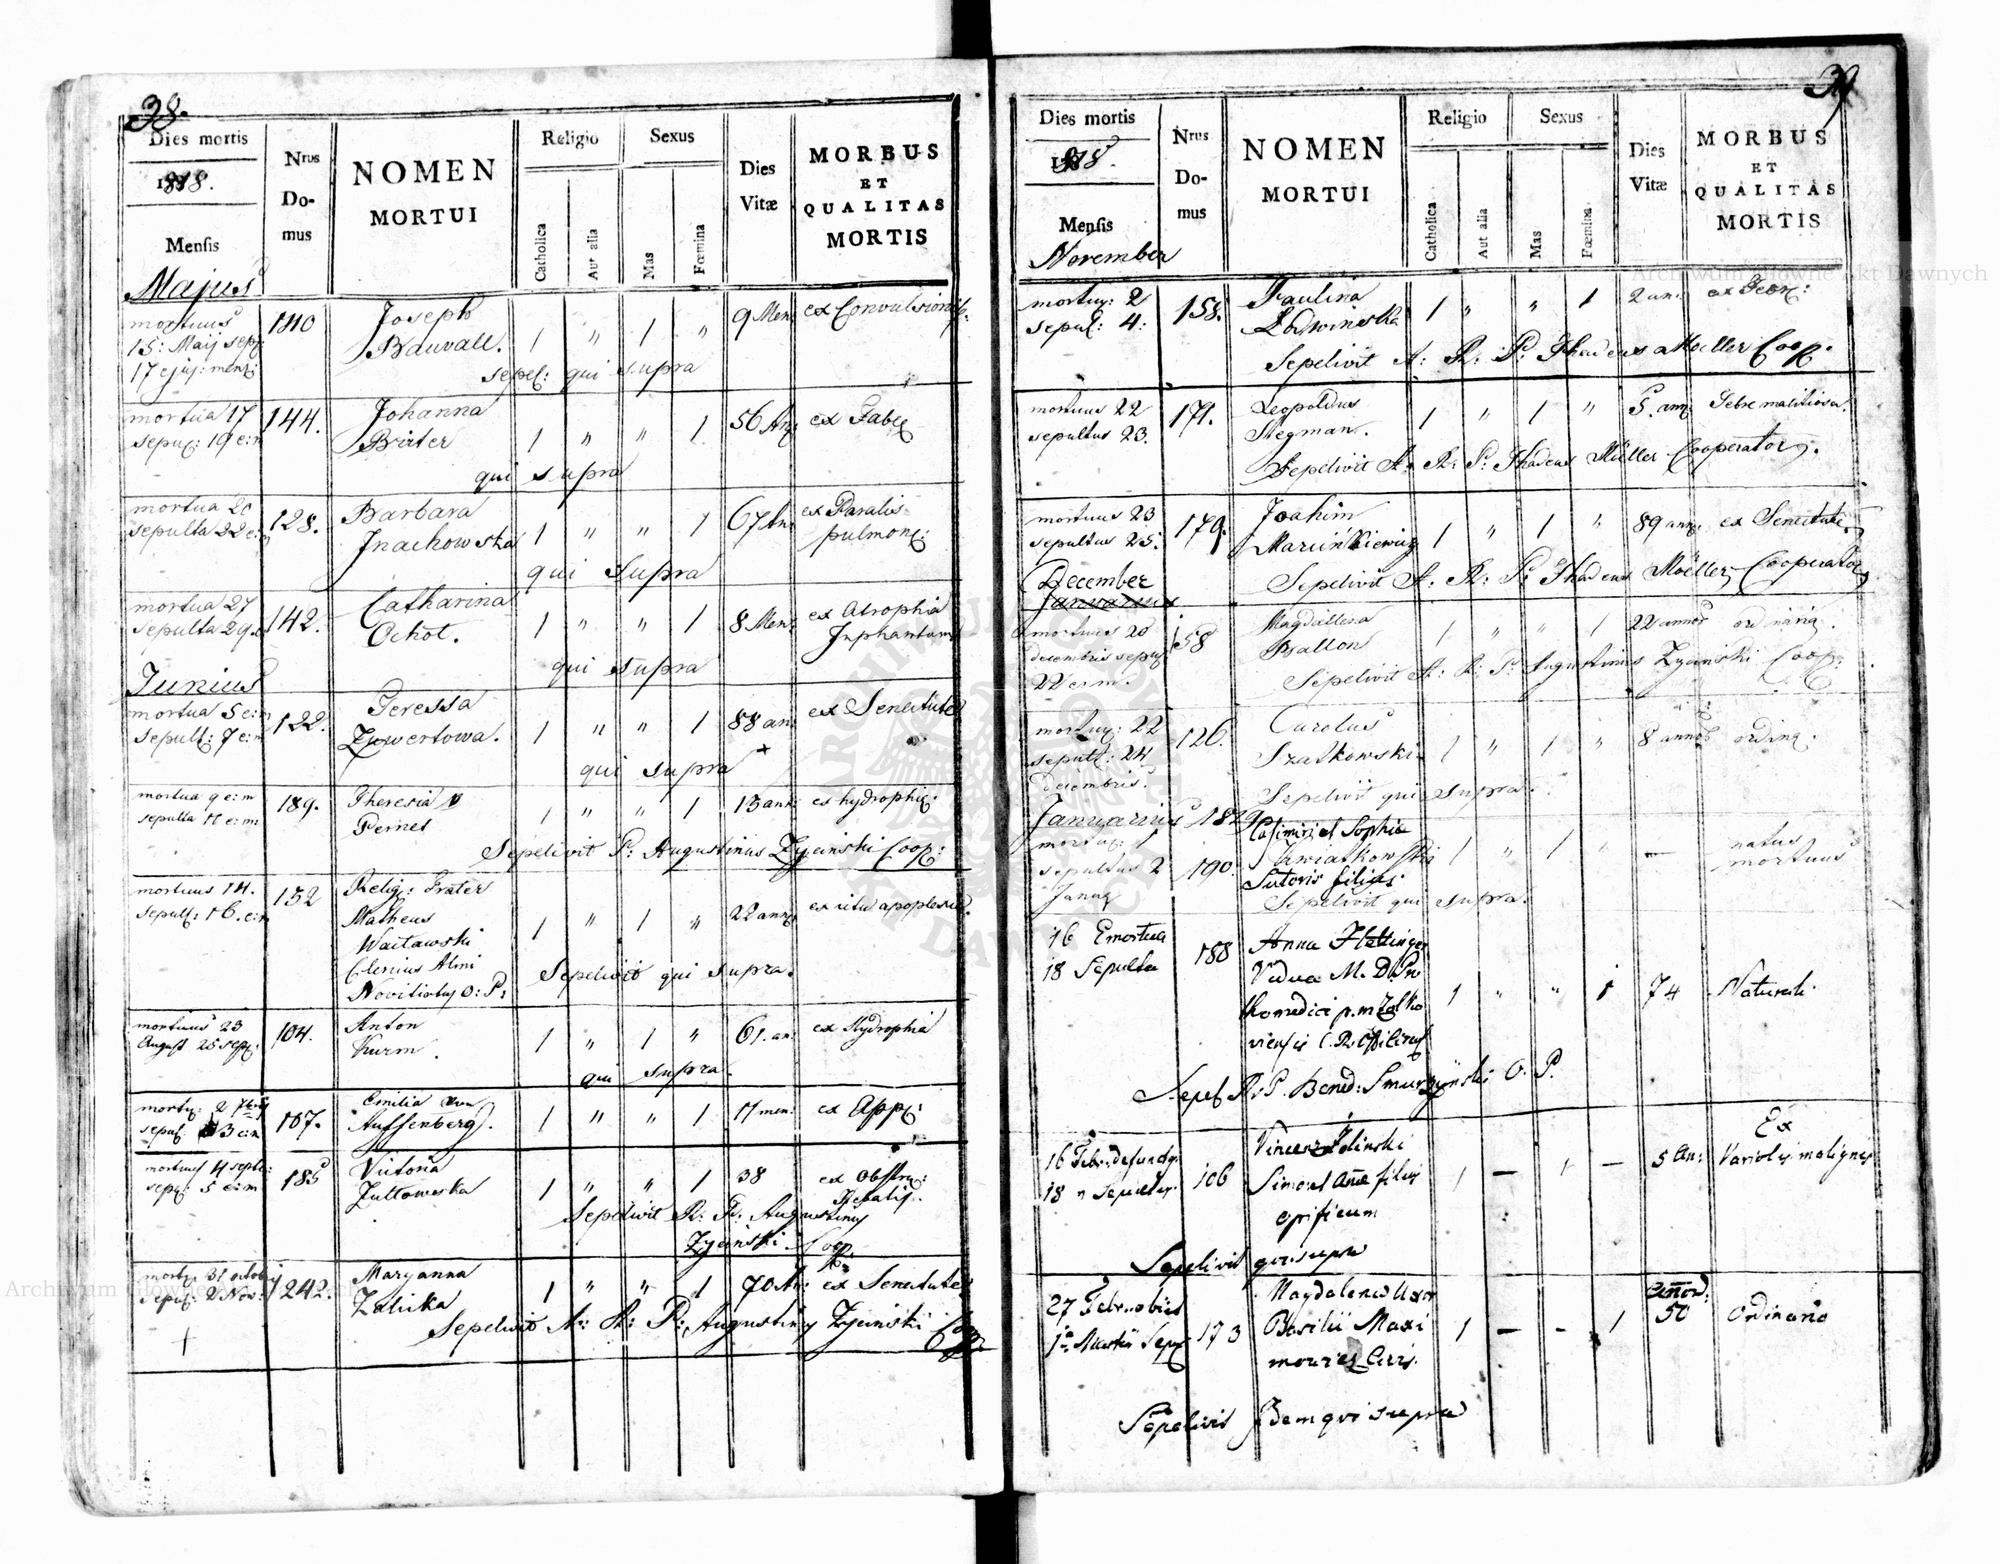 38.
Dies mortis
1818.
Mensis
Nrus
Do-
mus
NOMEN
MORTUI
Religio
Catholica
Aut alia
Sexus
Mas
Fœmina
Dies
Vitæ
MORBUS
ET
QUALITAS
MORTIS
Majus
mortuus
15: Maij sep:
17 ejus: mens:
140
Joseph
Bauvall.
1 " 1 "
9 Men:
ex Convulsionib:
sepel: qui supra
mortua 17
sepul: 19 e:m
144.
Johanna
Birter
1 " " 1
56 An:
ex Tabe
qui supra
mortua 20
sepulta 22 e:m
128.
Barbara
Jnachowska
1 " " 1
67 An:
ex Paralis
pulmon:
qui supra
mortua 27
sepulta 29 e:
142.
Catharina
Ochot.
1 " " 1
8 Men:
ex Atrophia
Jnphantum
qui supra
Junius
mortua 5 e:m
sepult: 7 e:m
122.
Teressa
Zywertowa.
1 " " 1
88 an:
ex Senectute
qui supra
mortua 9 e:m
sepulta 11 e:m
189.
Theresia
Pernet
1 " " 1
13 ann:
ex hydrophi:
Sepelivit P: Augustinus Zyeinski Coop:
mortuus 14.
sepult: 16. e:m
152
Relig: Frater
Matheus
Waitawski
Clericus Almi
Novitiatus O: P:
1 " 1 "
22 ann:
ex ictu apoplexiæ.
Sepelivit qui supra.
mortuus 23
August 25 sep:
104.
Anton
Kurm.
1 " 1 "
61. an:
ex Hydrophia
qui supra.
mortu: 2 7bris
sepul: 3 e:m
107.
Emilia von
Auffenberg.
1 " " 1
11 men:
ex App:
mortuus 4 septe:
sepu: 5 e:m
185
Victoria
Zultowska
1 " " 1
38
ex Obstru:
Hepatis.
Sepelivit R: P: Augustinus
Zyeinski Coop.
mortu: 31 octobris
sepul: 2 Nov:
242.
Maryanna
Zalicka
1 " " 1
70 An:
ex Senectute
Sepelivit A: R: P: Augustinus Zyeinski Coop:
39
Dies mortis
1818.
Mensis
November
Nrus
Do-
mus
NOMEN
MORTUI
Religio
Catholica
Aut alia
Sexus
Mas
Fœmina
Dies
Vitæ
MORBUS
ET
QUALITAS
MORTIS
mortu: 2
sepul: 4:
158.
Paulina
Lodwinska
1 " " 1
2 an:
ex Febr:
Sepelivit A: R: P: Thadeus Moeller Coop.
mortuus 22
sepultus 23.
171.
Leopoldus
Stegman.
1 " 1 "
5. ann:
Febre malitiosa.
Sepelivit A: R: P: Thadeus Müller Cooperator.
mortuus 23
sepultus 25.
179.
Joahim
Marcinkiewicz
1 " 1 "
89 ann:
ex Senectute
Sepelivit A: R: P: Thadeus Moëller Cooperator
December
Januarius
mortuus 20
decembris sepul:
22 e:m.
158
Magdallena
Ballon
1 " " 1
22 annor
ordinaria.
Sepelivit A: R: P: Augustinus Zyeinski Coop:
mortu: 22
sepult: 24
decembris.
126.
Carolus
Szatkowski
1 " 1 "
8 annor
ordina:
Sepelivit qui supra.
Januarius 1819
mortu: 1
sepultus 2
Janu:
190.
Casimiri et Sophia
Kwiatkowski
Sutoris filius
1 " 1 "
—
natus
mortuus
Sepelivit qui supra.
16 Emortua
18 Sepulta
188
Anna Hettinger
Vidua M. D. Pro
thomedici p.m Zolkie
viensis C. R. Officii
1 " " 1
74
Naturali.
Sepel R. P. Bened: Smurzynski O. P.
16 Febr. defunctus
18 " Sepultus.
106
Vincenz Jolinski
Simon et Annæ filius
opificum
1 — 1 —
5 An:
Ex
Variolis malignis
Sepelivit qui supra
27 Febr. obiit
1a Martii Sep:
173
Magdalena Uxor
Basilii Maxi
moviez Civis.
1 — - 1
Annor:
50
Ordinaria
Sepelivit Idem qui supra
Archiwum Główne Akt Dawnych
Archiwum Główne Akt Dawnych
ARCHIWUM GŁÓWNE AKT DAWNYCH